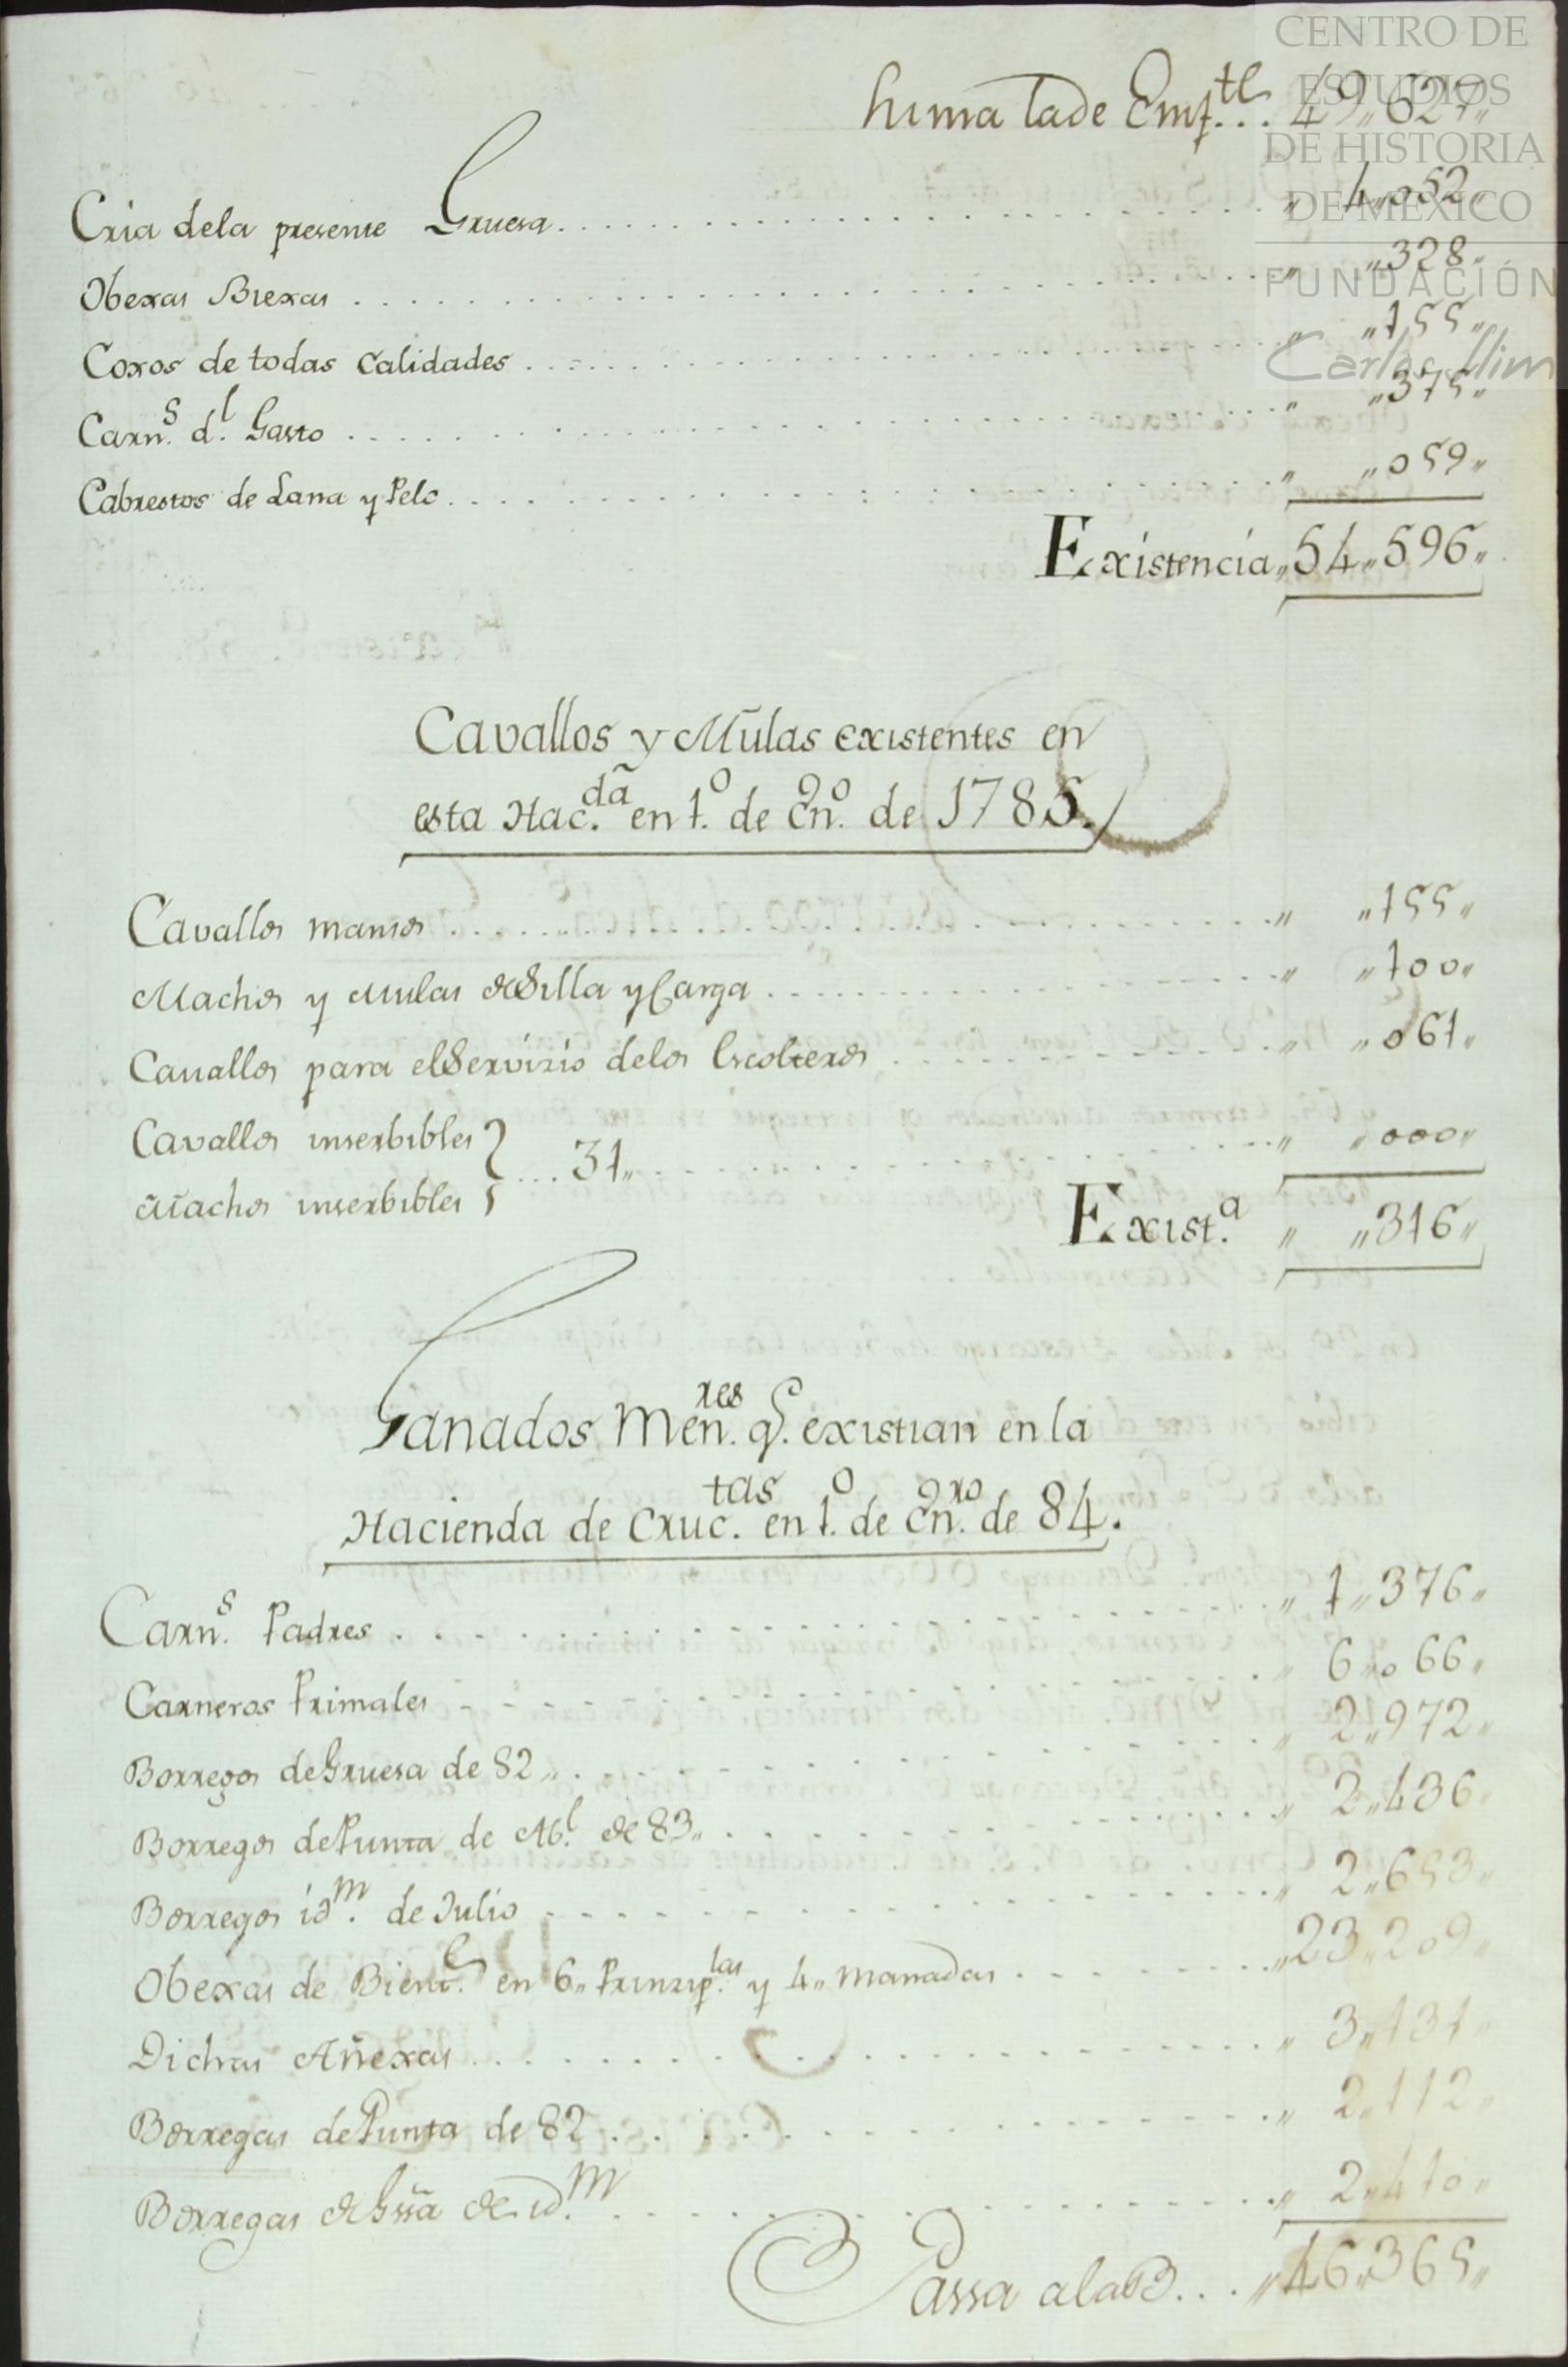 Suma lade Emf.te... 49,,627,,
Cria dela presente Gruesa. . . . ,, 4,,052,,
Obexas Biexas . . . . ,, ,,328,,
Coxos de todas Calidades . . . . ,, ,,155,,
Carn.s d.l Gasto . . . . ,, ,,375,,
Cabrestos de Lana y Pelo . . . . ,, ,,059,,
Existencia,,54,,596,,
Cavallos y Mulas existentes en
esta Hac.da en 1.o de En.o de 1785.
Cavallos mansos . . . . ,, ,,155,,
Machos y Mulas de Silla y Carga . . . . ,, ,,100,,
Cauallos para el Servizio delos Escolteros . . . . ,, ,,061,,
Cavallos inserbibles } ... 31,, . . . . ,, ,,000,,
Machos inserbibles
Exist.a ,, ,,316,,
Ganados Men.res q.e existian en la
Hacienda de Cruc.tas en 1.o de En.ro de 84.
Carn.s Padres . . . . ,, 1,,376,,
Carneros Primales . . . . ,, 6,,066,,
Borregos de Gruesa de 82,, . . . . ,, 2,,972,,
Borregos de Punta de Ab.l de 83,, . . . . ,, 2,,436,,
Borregos id.m de Julio . . . . ,, 2,,653,,
Obexas de Bient.e en 6,, Prinzip.las y 4,, manadas . . . . ,,23,,209,,
Dichas Añexas . . . . ,, 3,,131,,
Borregas de Punta de 82 . . . . ,, 2,,112,,
Borregas de Gssa de id.m . . . . ,, 2,,410,,
Passa ala B... ,,46,,365,,
CENTRO DE
ESTUDIOS
DE HISTORIA
DE MÉXICO
FUNDACIÓN
Carlos Slim